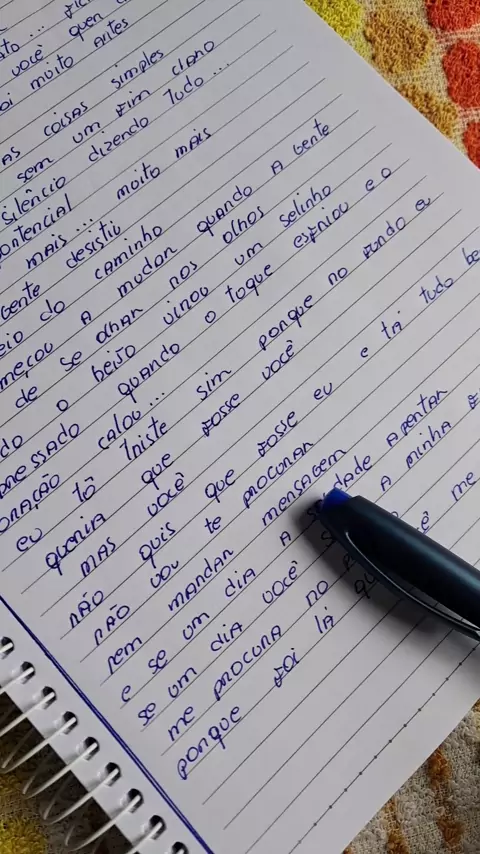 você quer
oi muito antes
as coisas simples
sem um fim claro
silêncio dizendo tudo...
pontencial muito mais
mais...
gente desistiu
eio do caminho
meçou a mudar quando a gente
de se olhar nos olhos
do o beijo virou um selinho
quando o toque esfriou e o
oração calou...
eu tô triste sim porque no fundo eu
queria que fosse você
mas você
não quis que fosse eu e tá tudo be
não vou te procurar
nem mandar mensagem
e se um dia a apertar
se um dia você a minha
me procura no me
porque foi lá